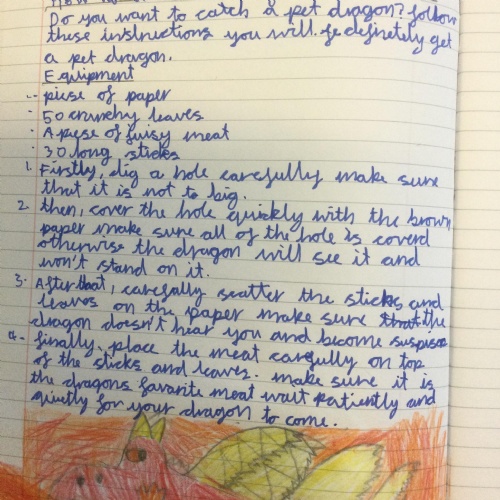 Do you want to catch a pet dragon? follow
these instructions you will definetely get
a pet dragon.
Equipment
· piese of paper
· 50 crunchy leaves
· A piese of juisy meat
· 30 long sticks
1. Firstly, dig a hole carefully make sure
that it is not to big.
2. then, cover the hole quickly with the brown
paper make sure all of the hole is coverd
otherwise the dragon will see it and
won't stand on it.
3. After that, carefully scatter the sticks and
leaves on the paper make sure that the
dragon doesn't hear you and become
4. finally, place the meat carefully on top
of the sticks and leaves. make sure it is
the dragons favorite meat wait patiently and
quietly for your dragon to come.